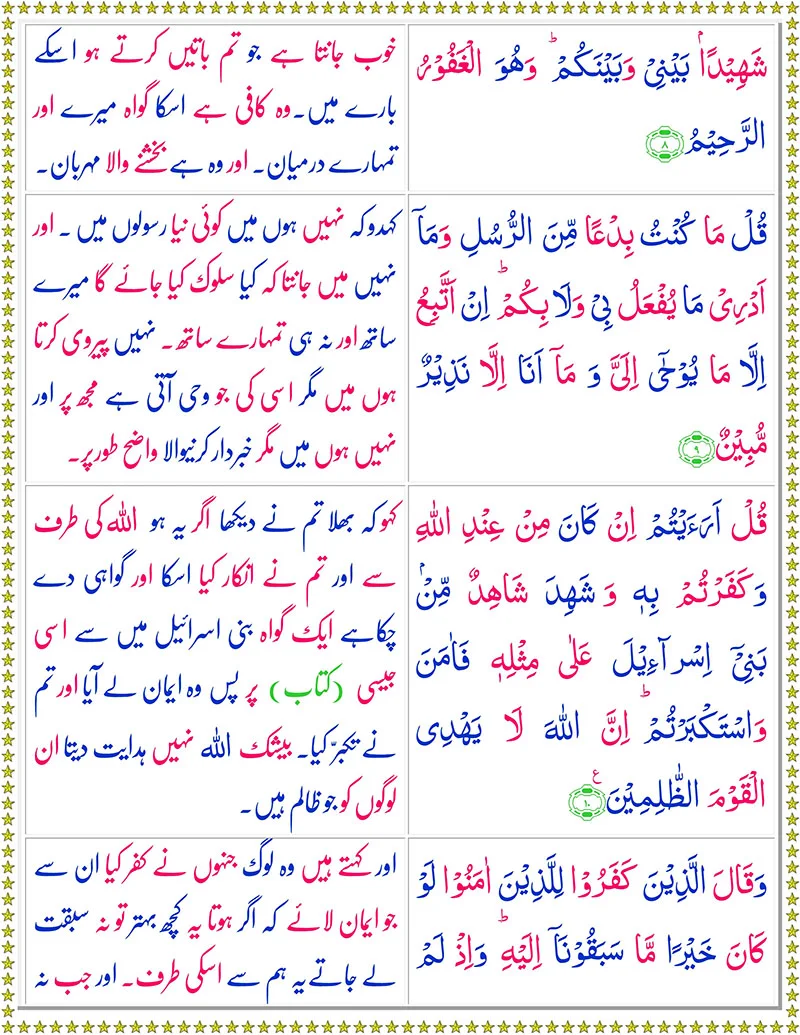 شَهِيۡدًاۢ بَيۡنِىۡ وَبَيۡنَكُمۡ ؕ وَهُوَ الۡغَفُوۡرُ
الرَّحِيۡمُ ‏﴿۸﴾
خوب جانتا ہے جو تم باتیں کرتے ہو اسکے
بارے میں۔ وہ کافی ہے اسکا گواہ میرے اور
تمہارے درمیان۔ اور وہ ہے بخشنے والا مہربان۔
قُلۡ مَا كُنۡتُ بِدۡعًا مِّنَ الرُّسُلِ وَمَاۤ
اَدۡرِىۡ مَا يُفۡعَلُ بِىۡ وَلَا بِكُمۡ ؕ اِنۡ اَتَّبِعُ
اِلَّا مَا يُوۡحٰٓى اِلَىَّ وَ مَاۤ اَنَا اِلَّا نَذِيۡرٌ
مُّبِيۡنٌ ﴿۹﴾
کہدو کہ نہیں ہوں میں کوئی نیا رسولوں میں ۔ اور
نہیں میں جانتا کہ کیا سلوک کیا جائے گا میرے
ساتھ اور نہ ہی تمہارے ساتھ۔ نہیں پیروی کرتا
ہوں میں مگر اسی کی جو وحی آتی ہے مجھ پر اور
نہیں ہوں میں مگر خبردار کرنیوالا واضح طورپر۔
قُلۡ اَرَءَيۡتُمۡ اِنۡ كَانَ مِنۡ عِنۡدِ اللّٰهِ
وَكَفَرۡتُمۡ بِهٖ وَ شَهِدَ شَاهِدٌ مِّنۡۢ
بَنِىۡۤ اِسۡرَآءِيۡلَ عَلٰى مِثۡلِهٖ فَاٰمَنَ
وَاسۡتَكۡبَرۡتُمۡ ؕ اِنَّ اللّٰهَ لَا يَهۡدِى
الۡقَوۡمَ الظّٰلِمِيۡنَ ﴿۱۰﴾ ع
کہو کہ بھلا تم نے دیکھا اگر یہ ہو اللہ کی طرف
سے اور تم نے انکار کیا اسکا اور گواہی دے
چکاہے ایک گواہ بنی اسرائیل میں سے اسی
جیسی (کتاب) پر پس وہ ایمان لے آیا اور تم
نے تکبّر کیا۔ بیشک اللہ نہیں ہدایت دیتا ان
لوگوں کو جو ظالم ہیں۔
وَقَالَ الَّذِيۡنَ كَفَرُوۡا لِلَّذِيۡنَ اٰمَنُوۡا لَوۡ
كَانَ خَيۡرًا مَّا سَبَقُوۡنَاۤ اِلَيۡهِ ؕ وَاِذۡ لَمۡ
اور کہتے ہیں وہ لوگ جنہوں نے کفر کیا ان سے
جو ایمان لائے کہ اگر ہوتا یہ کچھ بہتر تو نہ سبقت
لے جاتے یہ ہم سے اسکی طرف۔ اور جب نہ